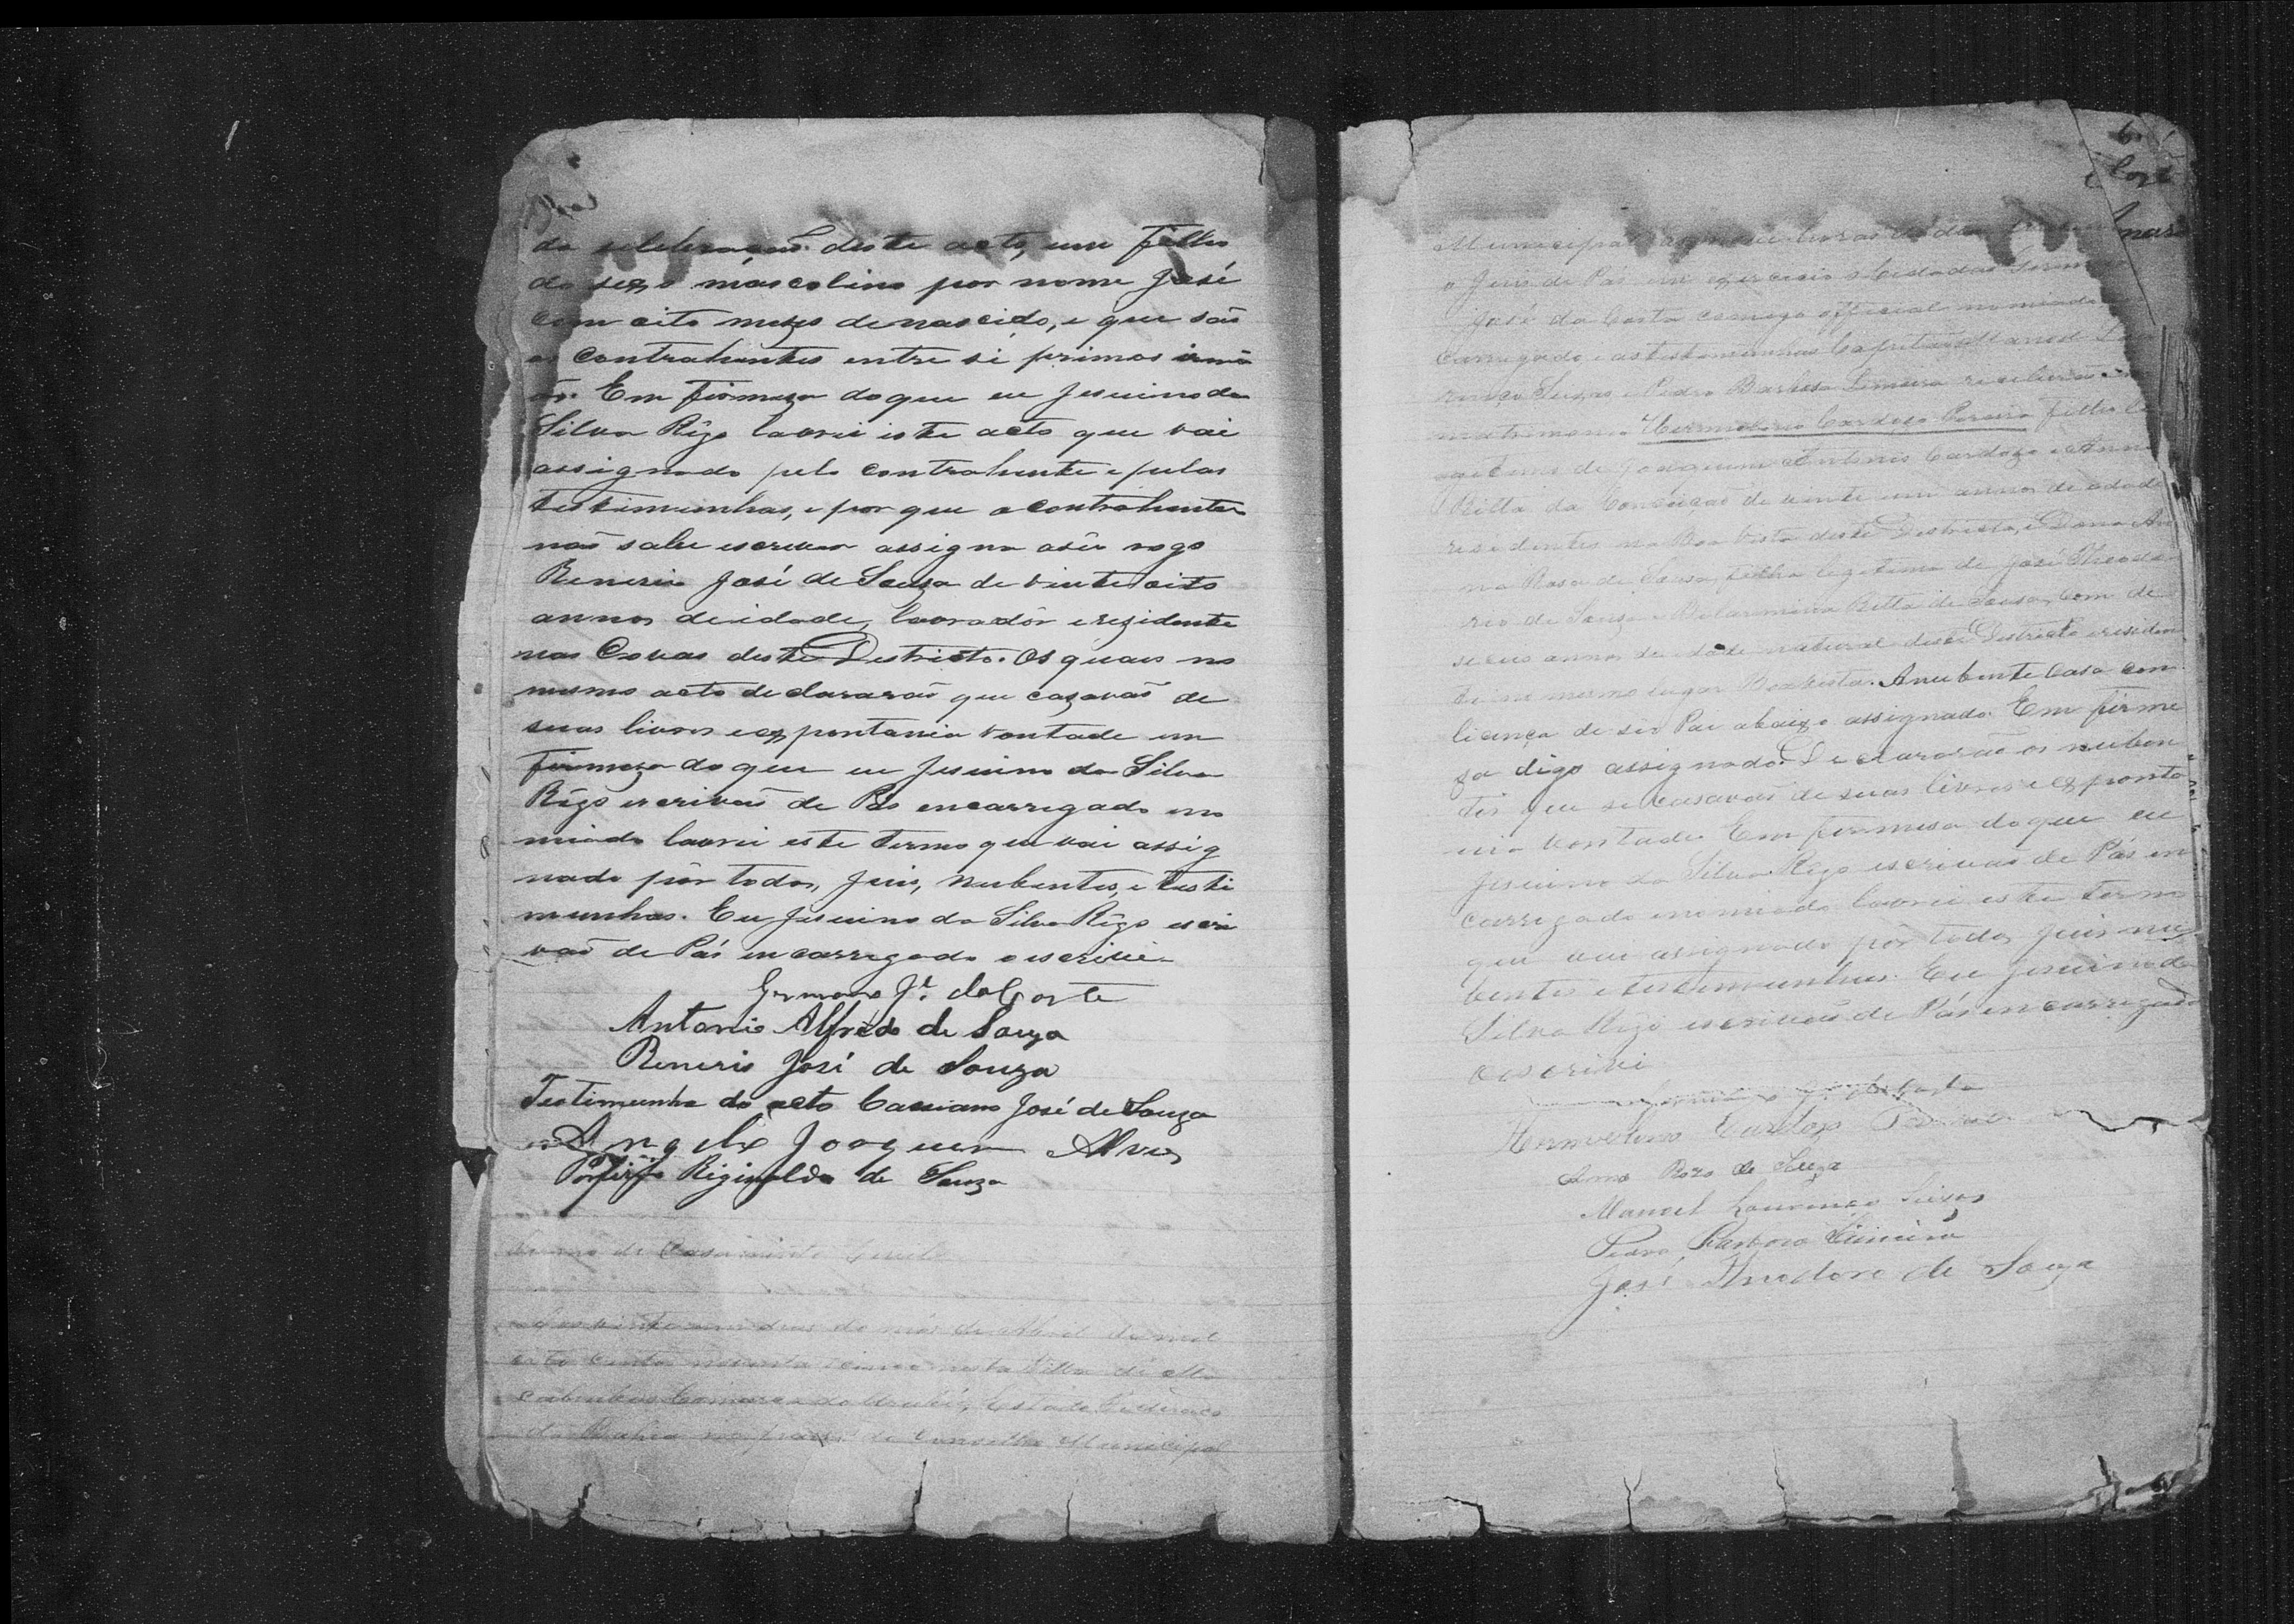 da celebração deste acto, um filho
do sexo masculino por nome José
com oito mezes de nascido, e que são
os contrahentes entre si primos irmã
os. Em firmeza do que eu Jesuino da
Silva Rêgo lavrei este acto que vai
assignado pelo contrahente e pelas
testimunhas, e por que a contrahente
naõ sabe escrever assigna a seu rogo
Reneris José de Souza de vinte oito
annos de idade, lavradôr e rezidente
nas Covas deste Destricto. Os quais no
mesmo acto declararaõ que cazavaõ de
suas livres e expontania vontade em
firmeza do que eu Jesuino da Silva
Rêgo escrivaõ de Pás encarregado no
miado lavrei este termo que vai assig
nado pôr todos, Juis, Nubentes, e testi
munhas. Eu Jesuino da Silva Rêgo escri
vaõ de Pás encarregado o escrivi
Germano Jé. da Costa
Antonio Alfrêdo de Souza
Reneris José de Souza
Testimunha do acto Cassiano José de Souza
Angelo Joaquim Alves
Porfirio Riginaldo de Souza
termo de Casamento
vinte um dias do mês de Abril de mil
oito centos noventa e cinco nesta Villa de Ma
cahubas Comarca do Urubú, Estado
da Bahia no do Conselho Municipal
6
Costa
Municipal horas do dia
o Juis de Pas em exercicio o Cidadaõ Germano
José da Costa comigo official nomiado
carregado e as testimunhas Capitaõ Manoel Lou
renço Seixas e Pedro Barbosa receberaõ
matrimonio Hermelino Cardozo Pereira filho le
gitimo de Joaquim Antonio Cardozo e Anna
Ritta da Conceiçaõ de vinte um annos de idade
residentes na Boa Vista deste Destricto, e Dona An
na Rosa de Sousa, filha legitima de José Theodo
ro de Souza e Belarmina Ritta de Sousa, com de
seis annos de idade natural deste Destricto e residen
te no mesmo lugar Boa Vista. A nubente casa com
licença de seu Pai abaixo assignado. Em firme
za digo assignado. Declararaõ os nuben
tes que se casavaõ de suas livres e exponta
nia vontade. Em firmesa do que eu
Jesuino da Silva Rêgo escrivaõ de Pás en
carregado nomiado lavrei este termo
que vai assignado pôr todos Juis nu
bentes e testimunhas. Eu Jesuino da
Silva Rêgo escrivaõ de Pás encarregado
o escrivi
Germano Jé. da Costa
Hermelino Cardozo Pereira
Anna Roza de Souza
Manoel Lourenço Seixas
Pedro Barbosa
José Theodoro de Souza